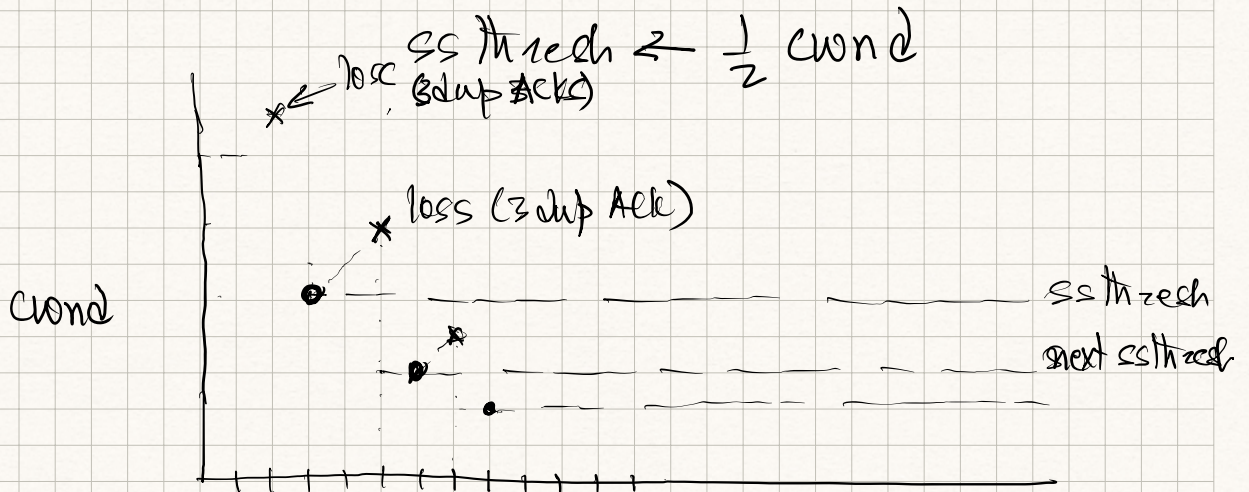 ssthresh ← 1/2 cwnd
loss (3dup Acks)
loss (3 dup Ack)
cwnd
ssthresh
next ssthresh